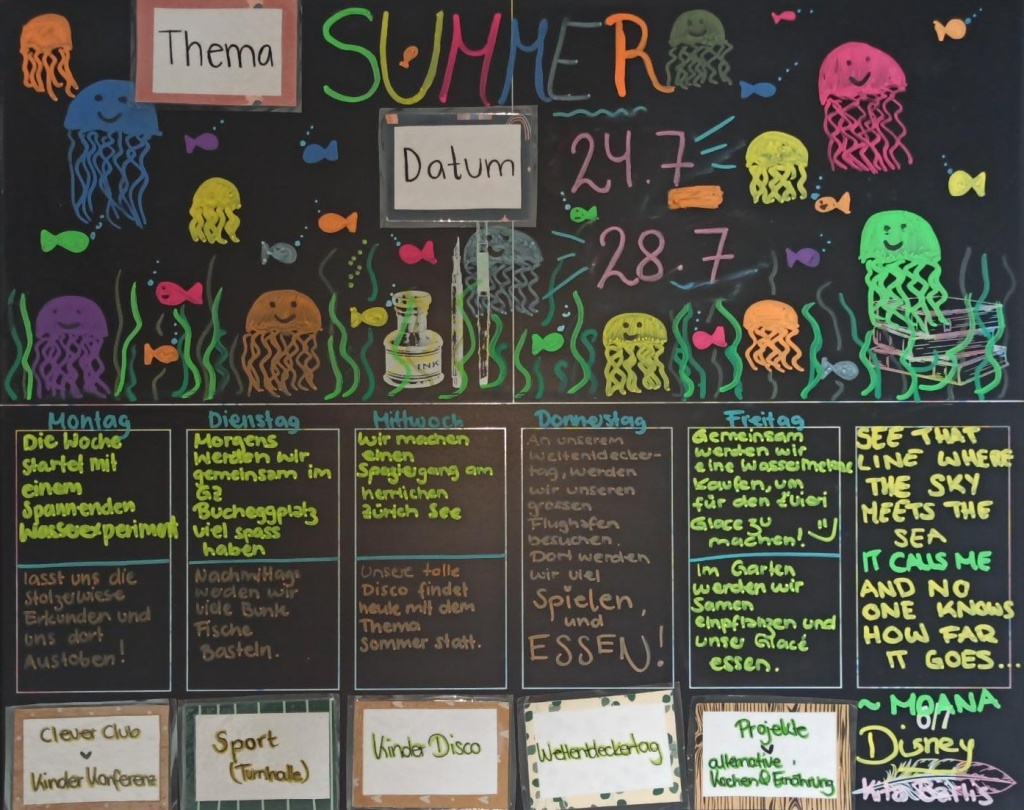 Thema
SUMMER
Datum
24.7
28.7
INK
Montag
Die Woche
startet mit
einem
Spannenden
Wasserexperiment
lasst uns die
Stolzewiese
Erkunden und
uns dort
Austoben!
Clever Club
Kinder Konferenz
Dienstag
Morgens
werden wir
gemeinsam im
GZ
Bucheggplatz
viel spass
haben
Nachmittags
werden wir
viele Bunte
Fische
Basteln.
Sport
(Turnhalle)
Mittwoch
Wir machen
einen
Spaziergang am
herrlichen
Zürich See
Unsere tolle
Disco findet
heute mit dem
Thema
Sommer statt.
Kinder Disco
Donnerstag
An unserem
Weltentdecker-
tag, werden
wir unseren
grossen
Flughafen
besuchen.
Dort werden
wir viel
Spielen,
und
ESSEN!
Weltentdeckertag
Freitag
Gemeinsam
werden wir
eine Wassermelone
Kaufen, um
für den Zvieri
Glace zu
machen!
Im Garten
werden wir
Samen
einpflanzen und
unser Glacé
essen.
Projekte
alternative
Kochen & Ernährung
SEE THAT
LINE WHERE
THE SKY
MEETS THE
SEA
IT CALLS ME
AND NO
ONE KNOWS
HOW FAR
IT GOES...
~ MOANA
Disney